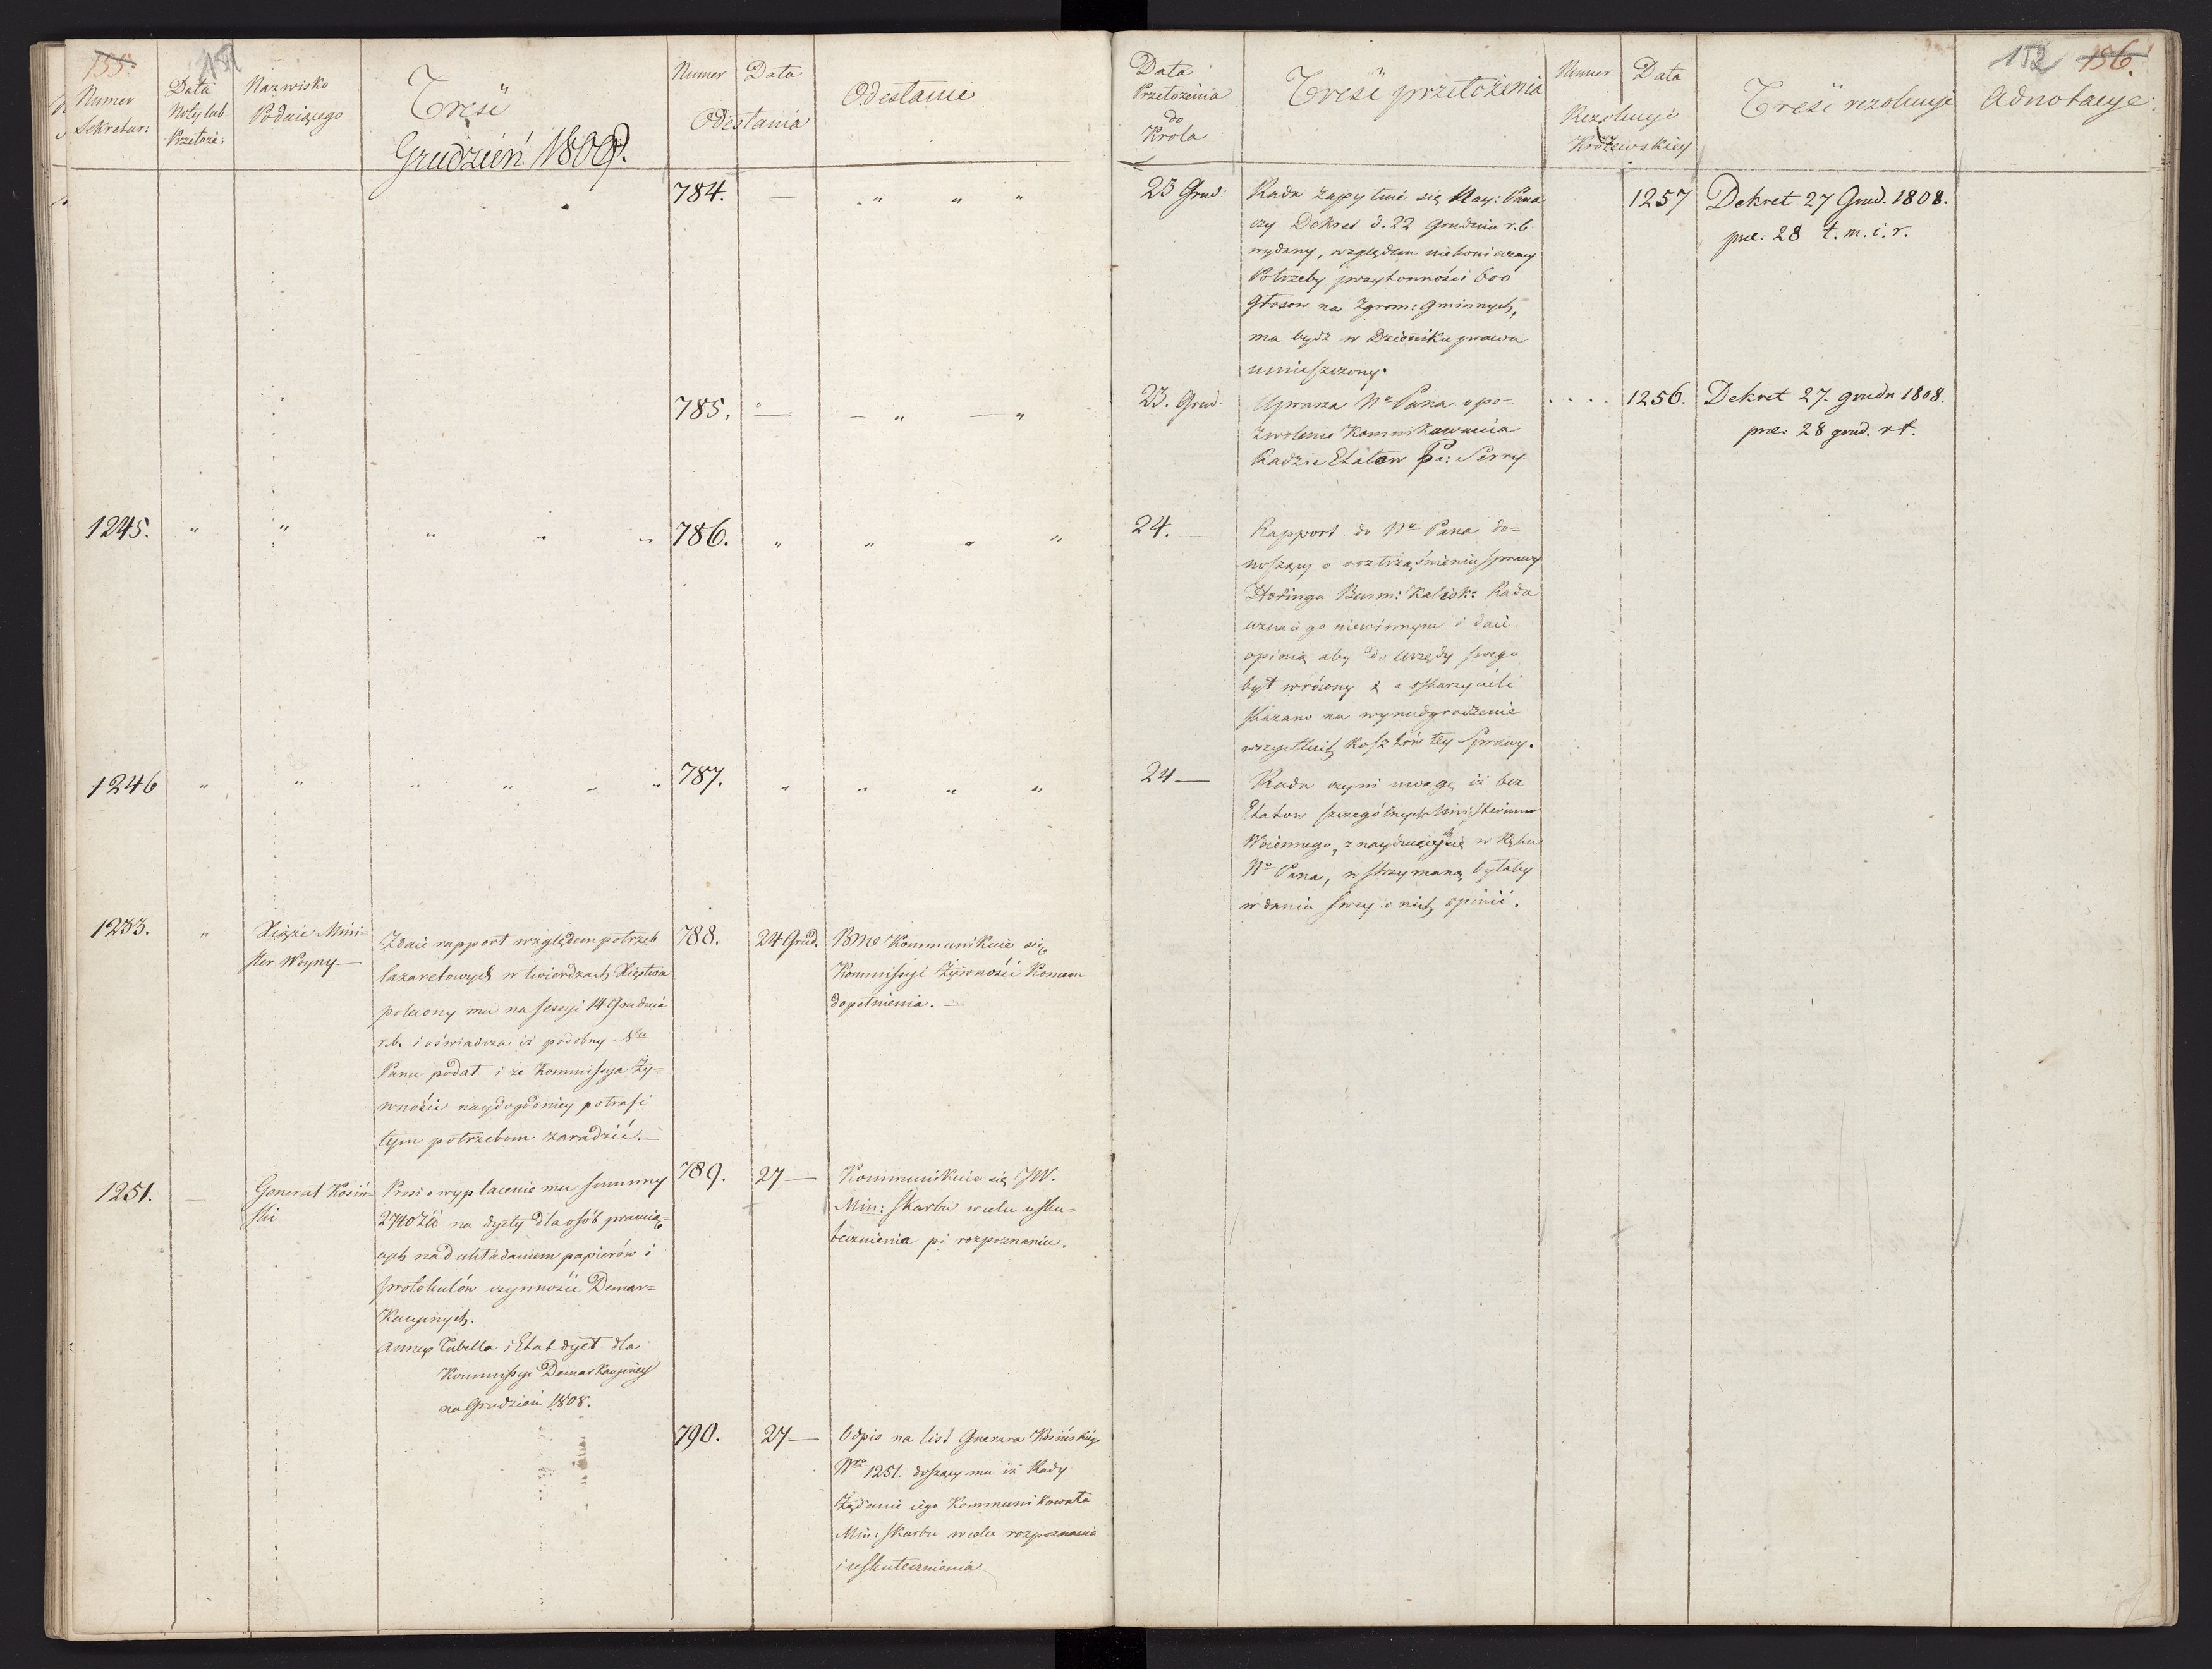 155.
151
Numer
Sekretar:
Data
Noty lub
Przełoże:
Nazwisko
Podaiącego
Treść
Grudzień 1808.
Numer
Data
Odesłania
Odesłanie
784. — " " "
785. " — — " — "
1245. " " " " " 786. " " " "
1246 " " " " " " 787. " " " "
1233. "
Xiąże Mini=
ster Woyny
Zdaie rapport względem potrzeb
lazaretowych w twierdzach Xięstwa
polecony mu na sessyi 14 Grudnia
r.b. i oświadcza iż podobny
Panu podał i że Kommissya Ży=
wności naydogodniey potrafi
tym potrzebom zaradzić. —
788.
24 Grud.
Kommunikuie się
Kommissyi Żywności
dopełnienia. —
1251. —
Generał Kosiń=
ski
Prosi o wypłacenie mu summy
2740 Zło na dyety dla osób pracuią=
cych nad układaniem papierów i
protokulów czynności Demar=
kacyinych.
Annex Tabella i Etat dyet dla
Kommissyi Demarkacyiney
na Grudzień 1808.
789.
27 —
Kommunikuie się JW.
Min: Skarbu w celu usku=
tecznienia po rozpoznaniu.
790.
27 —
Odpis na list Gnerara Kosińskiego
Nro 1251. doszący mu iż Rady
Żądanie iego Kommunikowała
Min: Skarbu w celu rozpoznania
i uskutecznienia
152 156.
Data
Przełożenia
do
Króla
Treść przełożenia
Numer
Data
Rezolucyi
Królewskiey
Treść rezolucyi
Adnotacye.
23 Grud:
Rada zapytuie się Nay: Pana
czy Dekret d. 22 Grudnia r.b
wydany, względem niekonieczney
Potrzeby przytomności 600
Głosow na Zgrom: Gminnych,
ma bydź w Dzieniku prawa
umieszczony.
1257
Dekret 27 Grud. 1808.
prae: 28 t.m.i.r.
23. Grud.
Uprasza No Pana o po=
zwolenie Kommikowania
Radzie Etatow Pa: Serry
. . . . 1256.
Dekret 27. grudn 1808.
prae: 28 grud. r t.
24. —
Rapport do Ne Pana do=
noszący o roztrząśnieniu sprawy
Burm: Kalisk: Rada
uznaie go niewinnym i daie
opinią aby do urzędu swego
był wrócony i a oskarzyciele
skazano na wynadgrodzenie
wszystkich kosztów tey sprawy.
24 —
Rada czyni uwagę iż bez
Etatow szczególnych Ministerium
Woiennego, znayduiących się w Ręku
No Pana, wstrzymaną byłaby
w daniu swey o nich opinii.